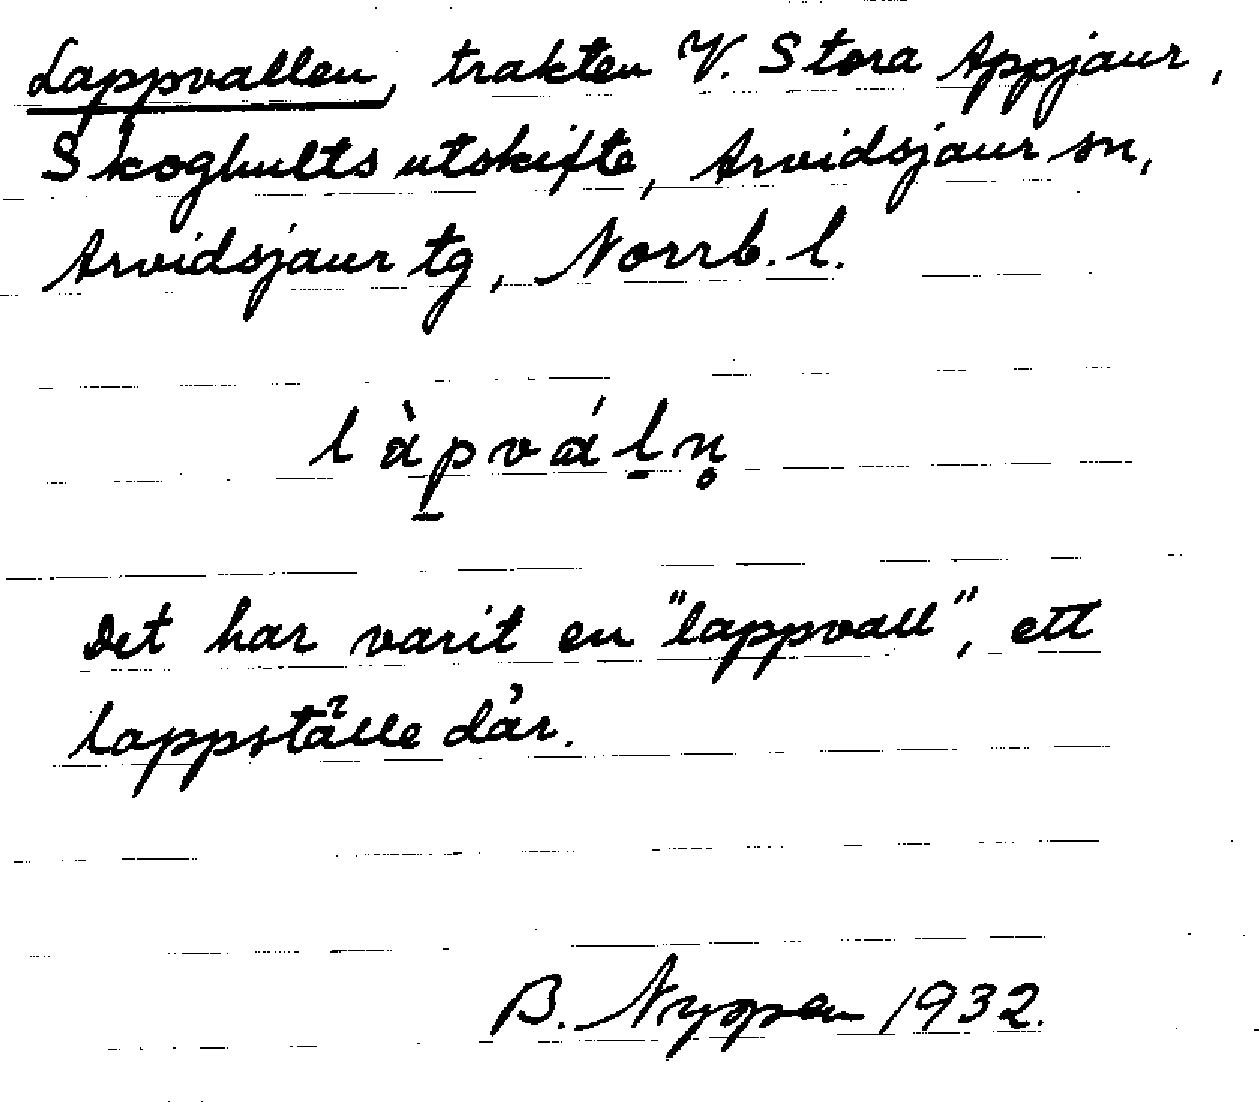 Lappvallen, trakten V. Stora Appjaur,
Skoghults utskifte, Arvidsjaur sn,
Arvidsjaur tg, Norrb. l.
l à p̲ v á l̲ n̥
Det har varit en "lappvall", ett
lappställe där.
B. Nyppen 1932.